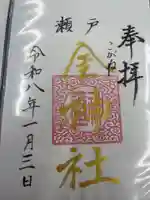 奉拝
瀬戸
こがね
金神社
令和八年一月三日